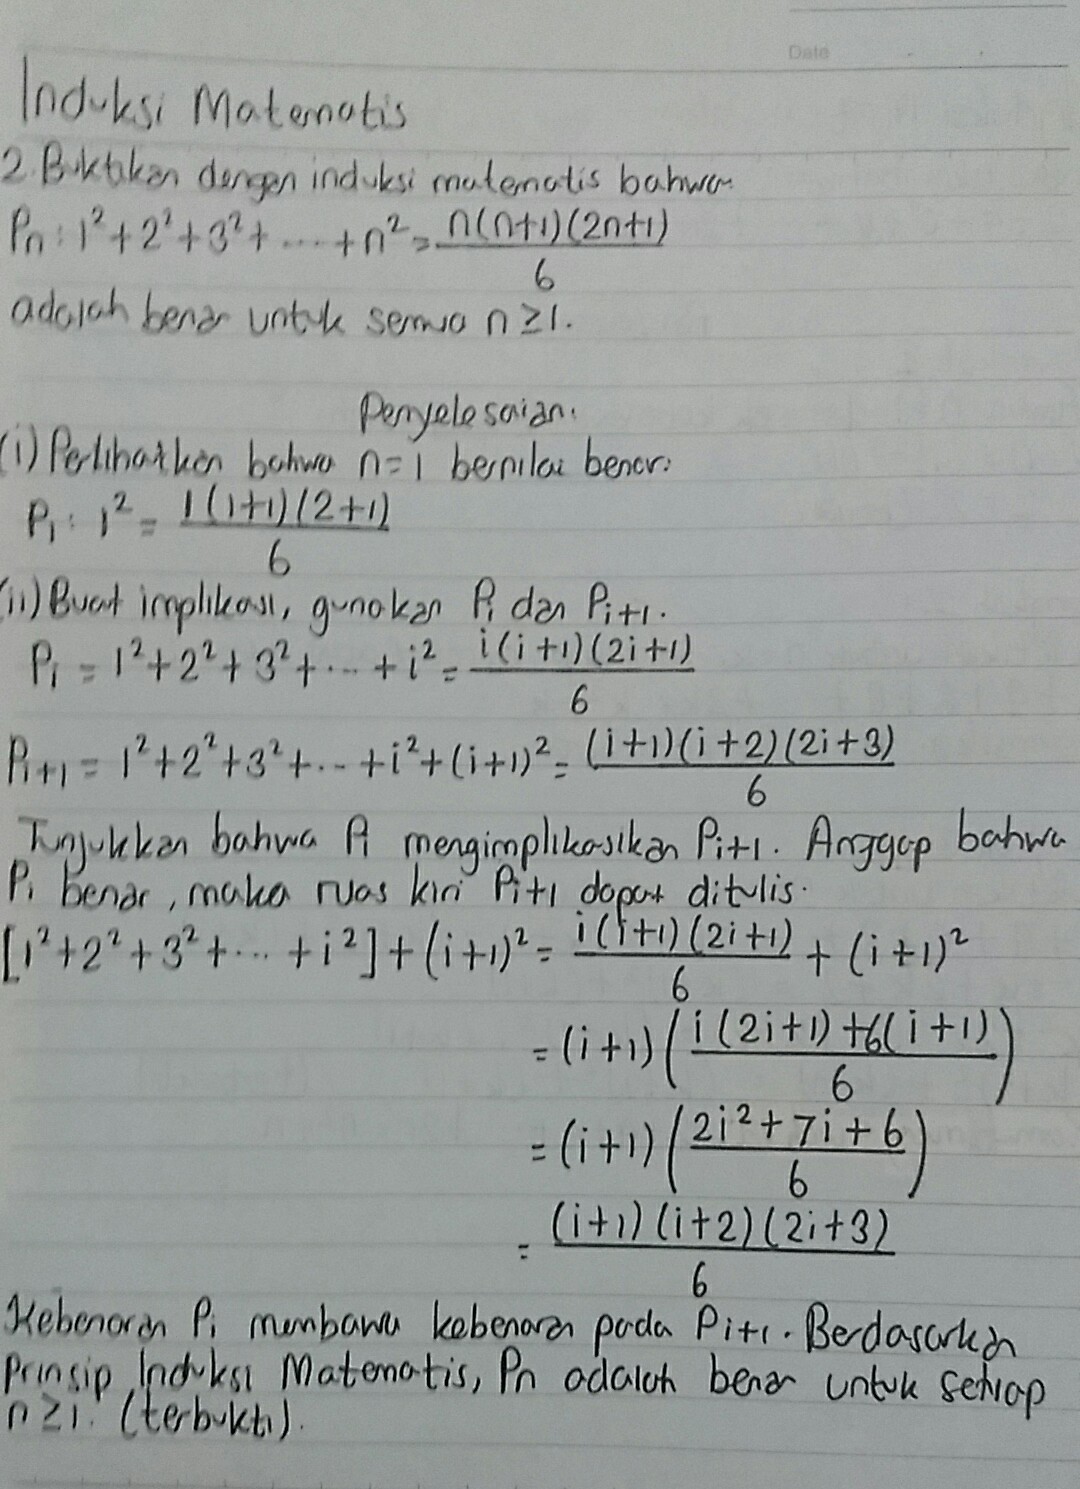 Date
Induksi Matematis
2. Buktikan dengan induksi matematis bahwa
Pn : 1² + 2² + 3² + .... + n² = n(n+1)(2n+1)/6
adalah benar untuk semua n ≥ 1.
Penyelesaian:
(i) Perlihatkan bahwa n = 1 bernilai benar:
P₁ : 1² = 1(1+1)(2+1)/6
(ii) Buat implikasi, gunakan Pi dan Pi+1.
Pi = 1² + 2² + 3² + ... + i² = i(i+1)(2i+1)/6
Pi+1 = 1² + 2² + 3² + ... + i² + (i+1)² = (i+1)(i+2)(2i+3)/6
Tunjukkan bahwa Pi mengimplikasikan Pi+1. Anggap bahwa
Pi benar, maka ruas kiri Pi+1 dapat ditulis:
[1² + 2² + 3² + ... + i²] + (i+1)² = i(i+1)(2i+1)/6 + (i+1)²
= (i+1) (i(2i+1) + 6(i+1)/6)
= (i+1) (2i² + 7i + 6/6)
= (i+1)(i+2)(2i+3)/6
Kebenaran Pi membawa kebenaran pada Pi+1. Berdasarkan
Prinsip Induksi Matematis, Pn adalah benar untuk setiap
n ≥ 1. (terbukti).